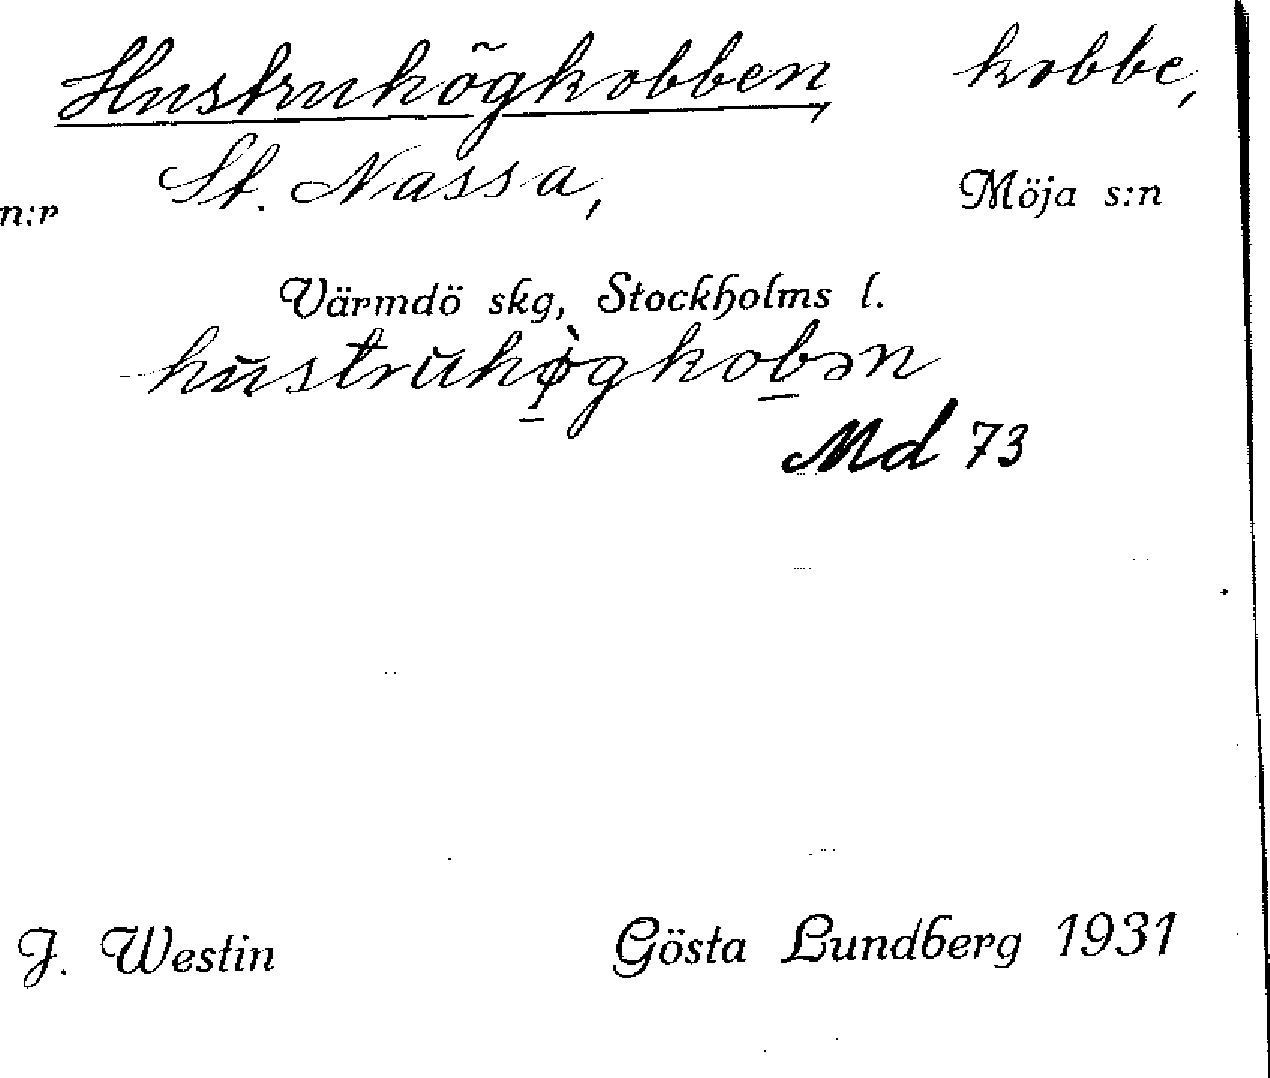 Hustruhögkobben, kobbe,
St. Nassa,
n:r Möja s:n
Värmdö skg, Stockholms l.
hustruhø̀gkobən
Md 73
J. Westin Gösta Lundberg 1931